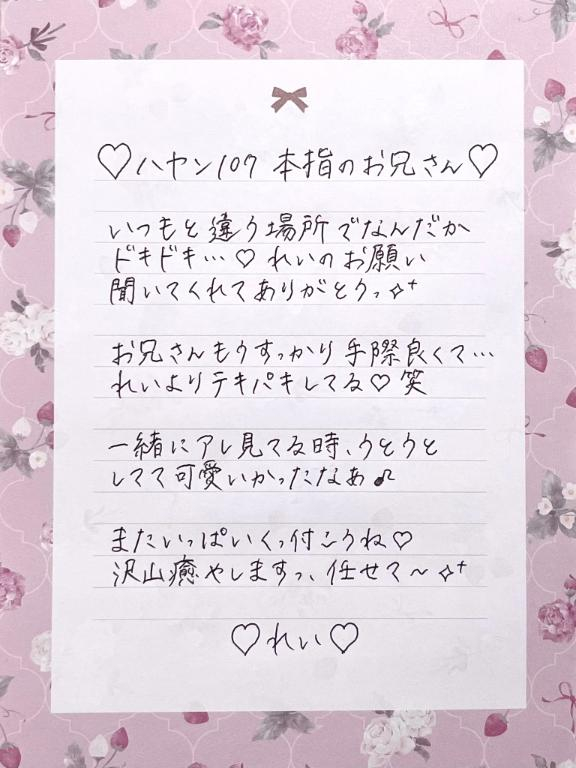 ♡ハヤン107 本指のお兄さん♡
いつもと違う場所でなんだか
ドキドキ…♡ れいのお願い
聞いてくれてありがとうっ✧⁺
お兄さんもうすっかり手際良くて…
れいよりテキパキしてる♡笑
一緒にアレ見てる時、うとうと
しててて可愛いかったなあ♫
またいっぱいくっ付こうね♡
沢山癒やしますっ、任せて〜✧⁺
♡れい♡